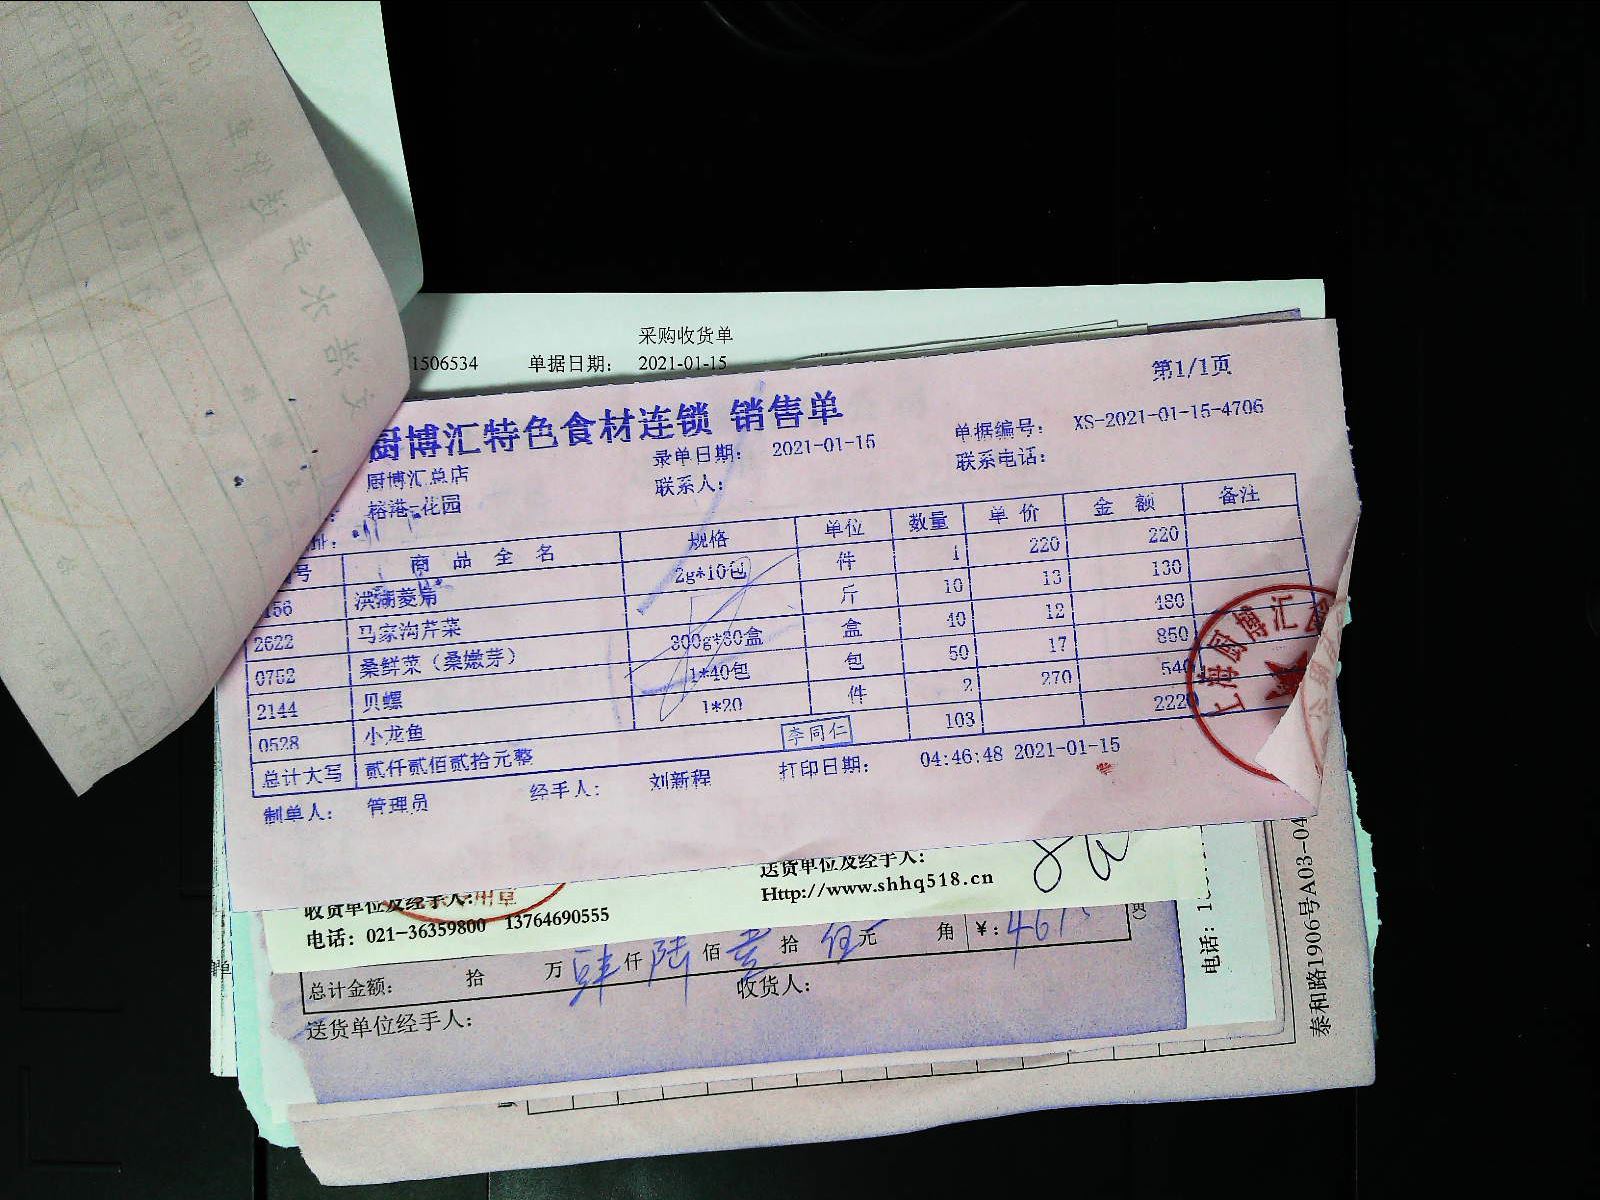 采购收货单
1506534 单据日期: 2021-01-15
第1/1页
厨博汇特色食材连锁 销售单
厨博汇总店 录单日期: 2021-01-15 单据编号: XS-2021-01-15-4706
榕港-花园 联系人: 联系电话:
址:
号 商品全名 规格 单位 数量 单价 金额 备注
156 洪湖菱角 2g*10包 件 1 220 220
2622 马家沟芹菜 斤 10 13 130
0752 桑鲜菜（桑嫩芽） 300g*30盒 盒 40 12 480
2144 贝螺 1*40包 包 50 17 850
0528 小龙鱼 1*20 件 2 270 540
总计大写 贰仟贰佰贰拾元整 李同仁 103 2220
制单人: 管理员 经手人: 刘新程 打印日期: 04:46:48 2021-01-15
上海厨博汇
收货单位及经手人: 送货单位及经手人:
用章
电话: 021-36359800 13764690555 Http://www.shhq518.cn
总计金额: 拾 万 肆仟 陆佰 壹拾 伍元 角 ¥: 461
送货单位经手人: 收货人:
电话: 1
泰和路1906号A03-04